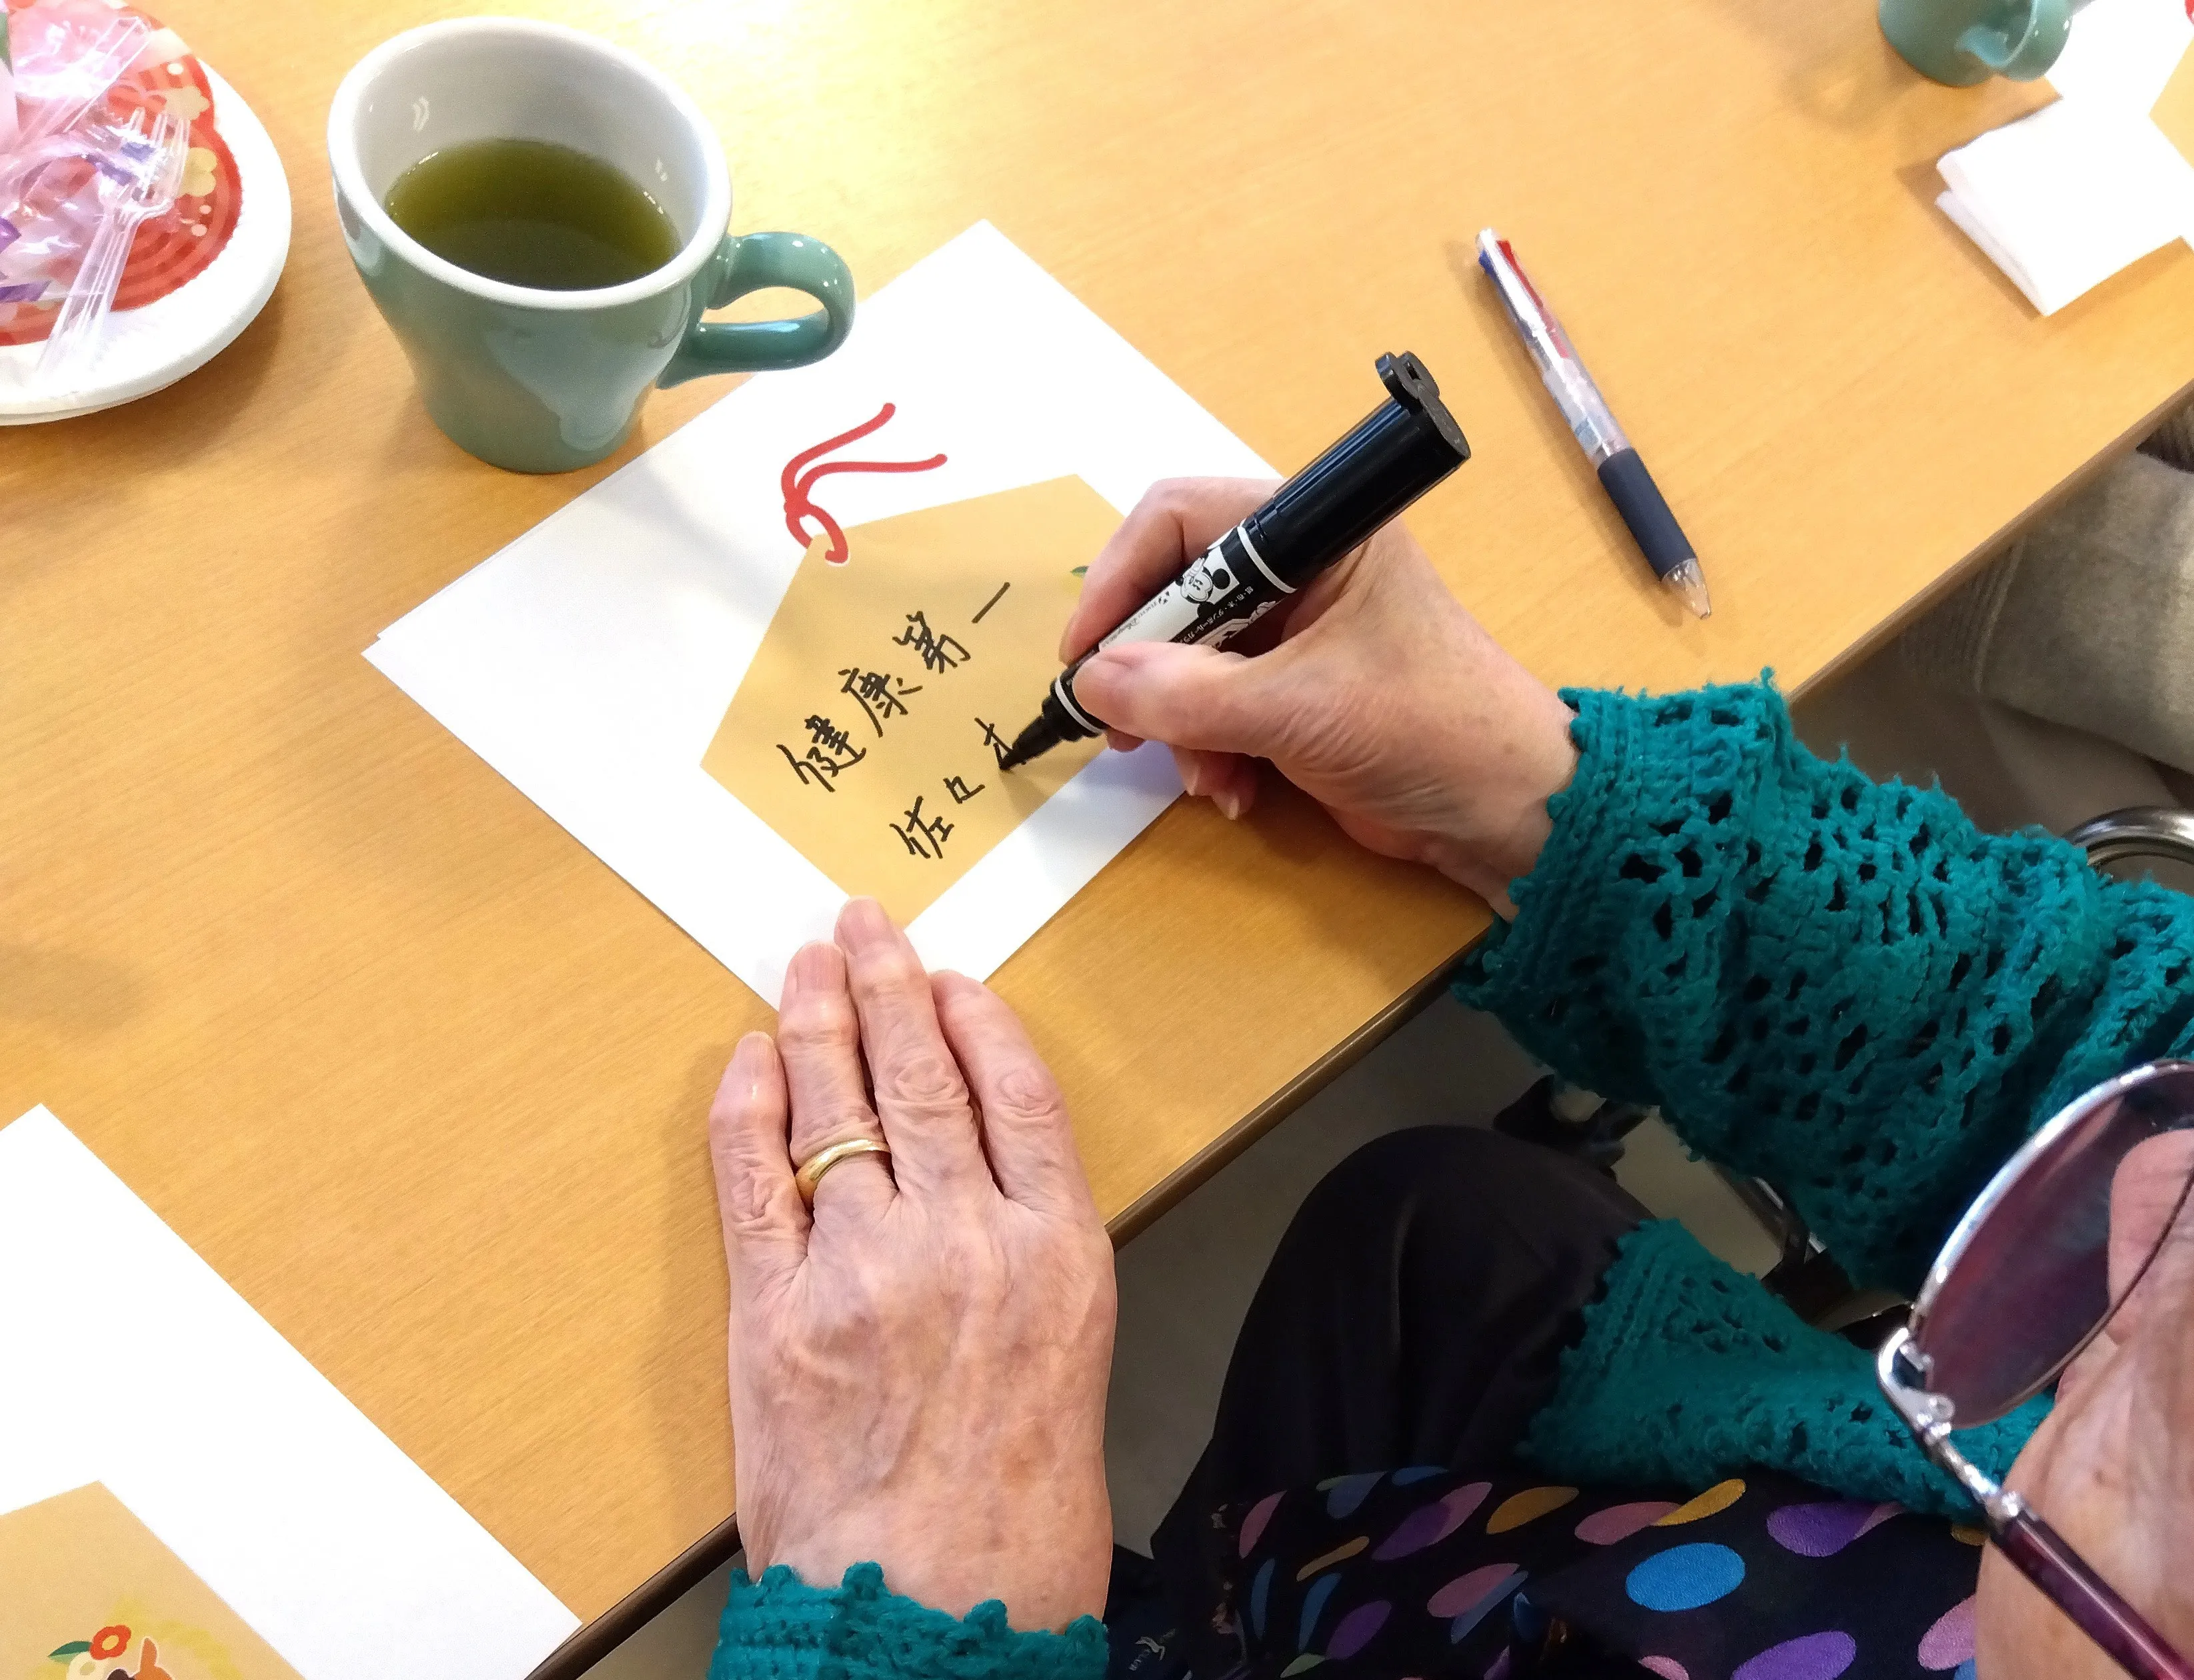 健康第一
佐々木